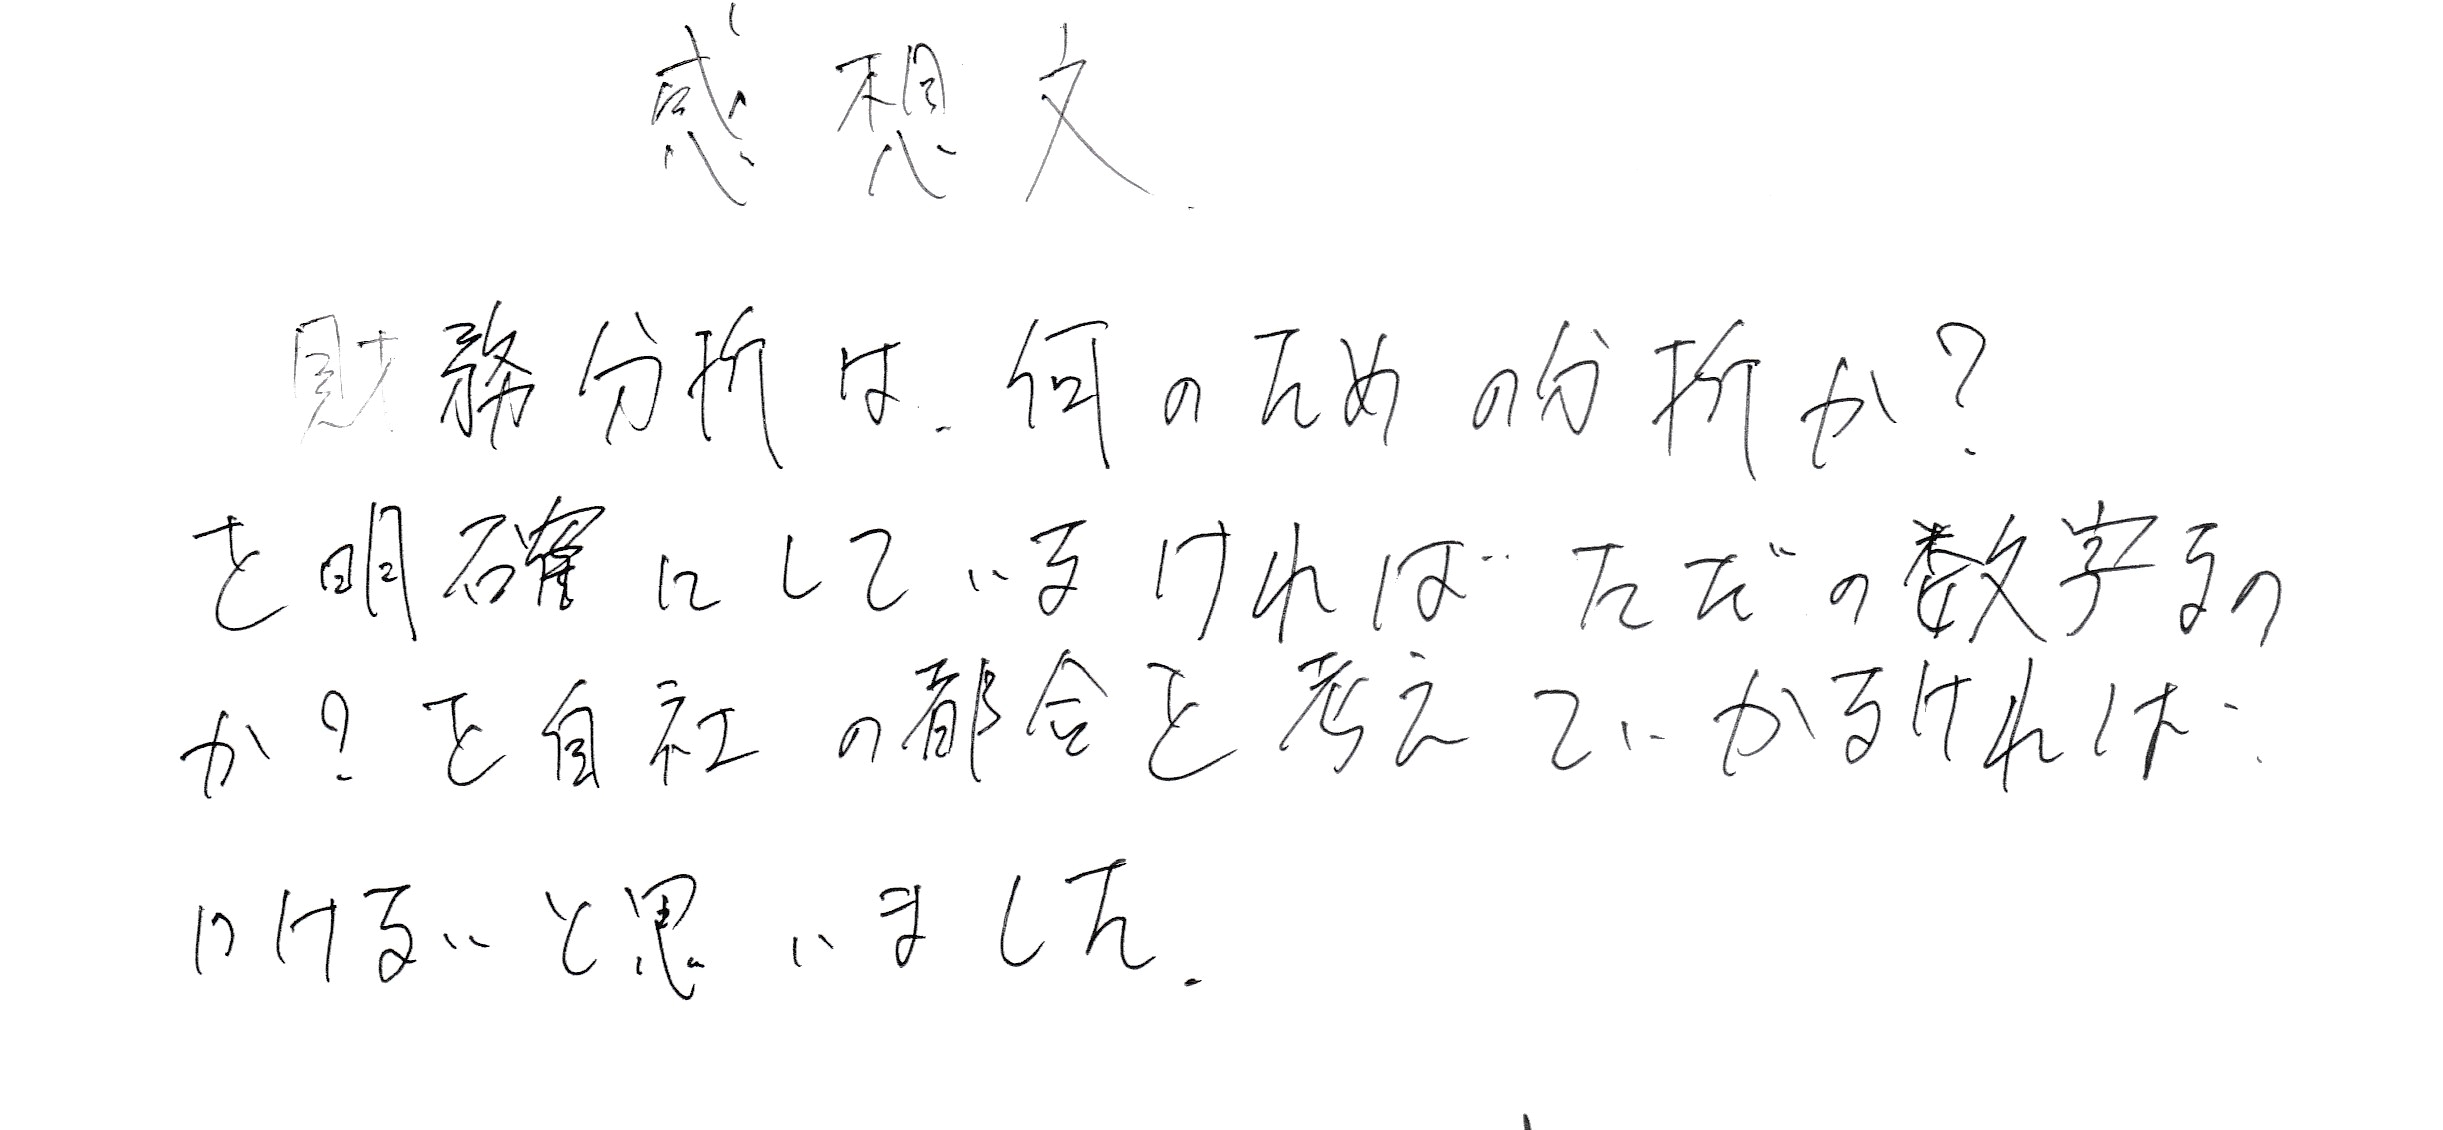 感想文.
財務分析は、何のための分析か?
を明確にしていなければただの数字なの
か?を自社の都合を考えていかなければ
いけないと思いました.